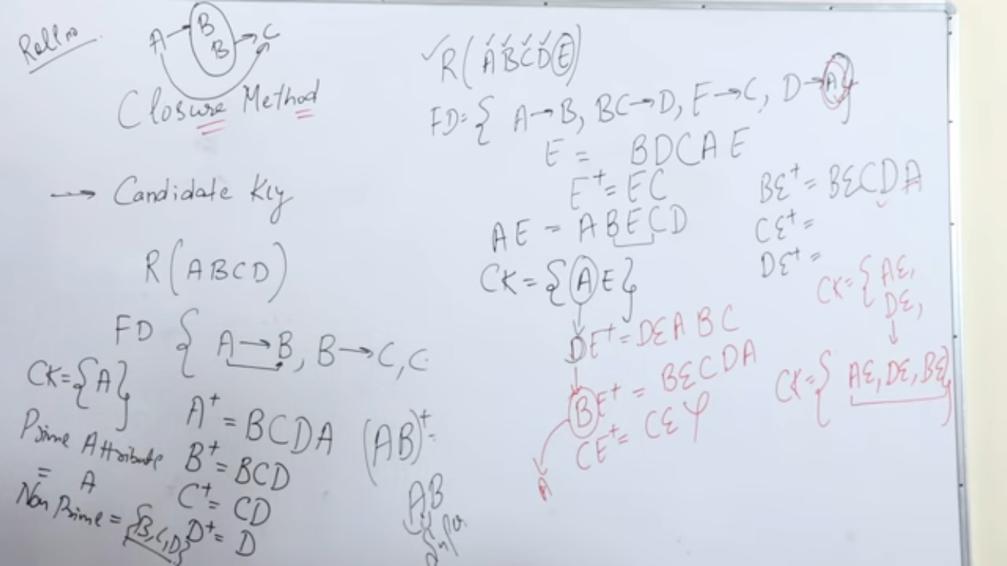 Roll no
A → B
B → C
Closure Method
→ Candidate Key
R(ABCD)
FD { A → B, B → C, C
CK = {A}
A⁺ = BCDA (AB)⁺ =
Prime Attribute
= A
B⁺ = BCD
C⁺ = CD
Non Prime = {B,C,D}
D⁺ = D
AB
✓R(ABCDE)
FD = { A → B, BC → D, E → C, D → A}
E = BDCAE
E⁺ = EC
AE = ABECD
CK = {AE}
DE⁺ = DEABC
BE⁺ = BECDA
CE⁺ = CE
A
BE⁺ = BECDA
CE⁺ =
DE⁺ =
CK = { AE,
DE,
CK = { AE, DE, BE}